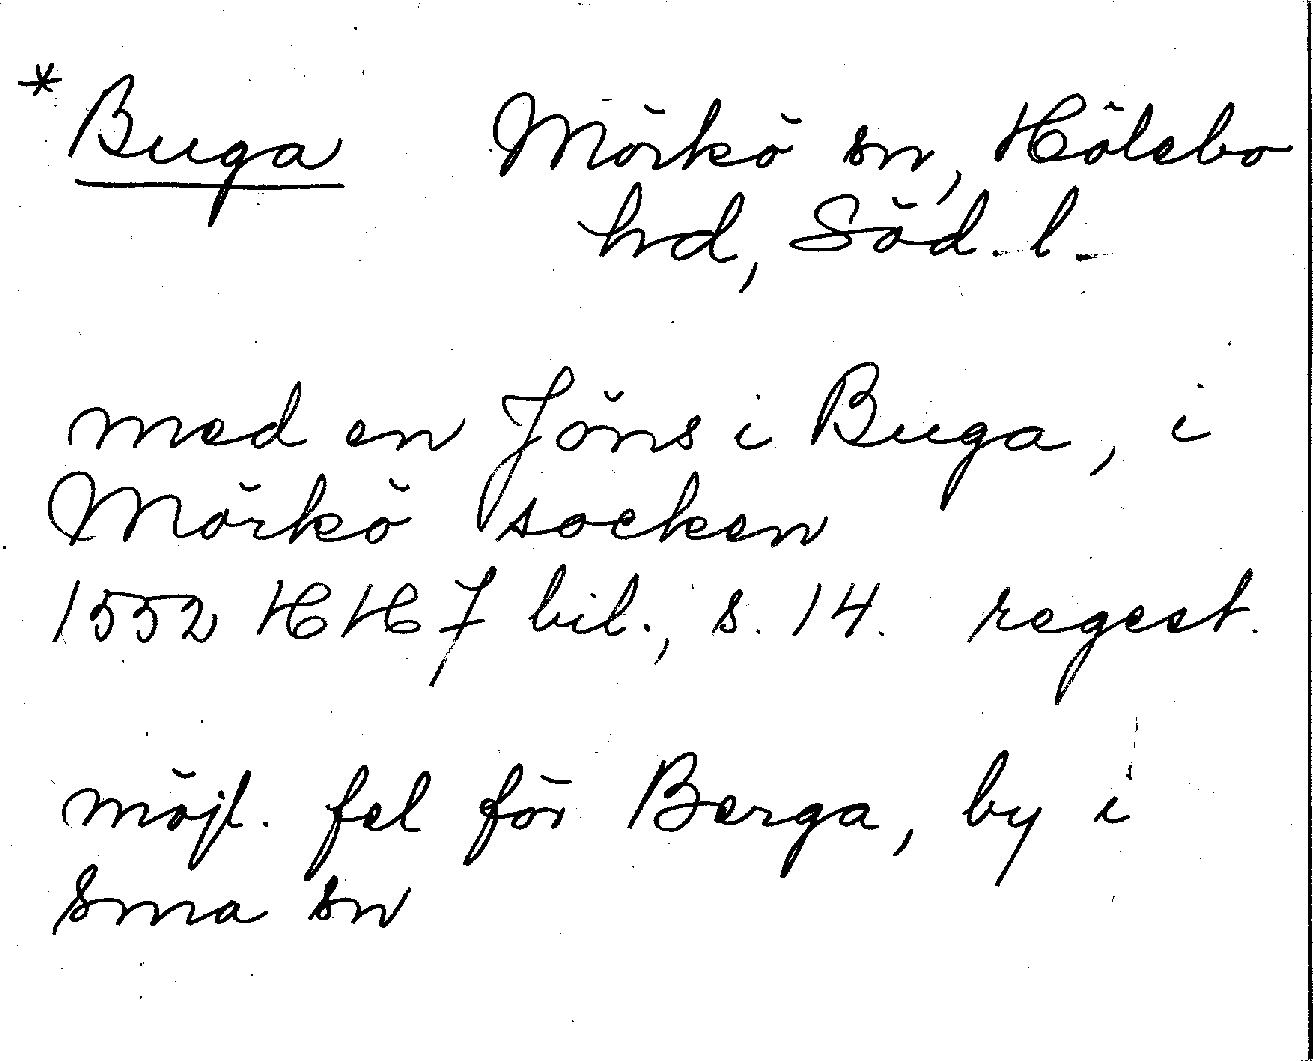 *Buga Mörkö sn, Hölebo
hd, Söd. l.
med en Jöns i Buga, i
Mörkö socken
1552 HH 7 bil., s. 14. regest.
möjl. fel för Berga, by i
sma sn